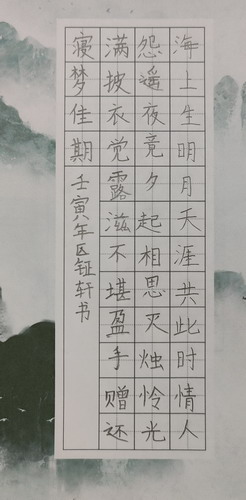 海上生明月天涯共此时情人
怨遥夜竟夕起相思灭烛怜光
满披衣觉露滋不堪盈手赠还
寝梦佳期
壬寅年区钲轩书